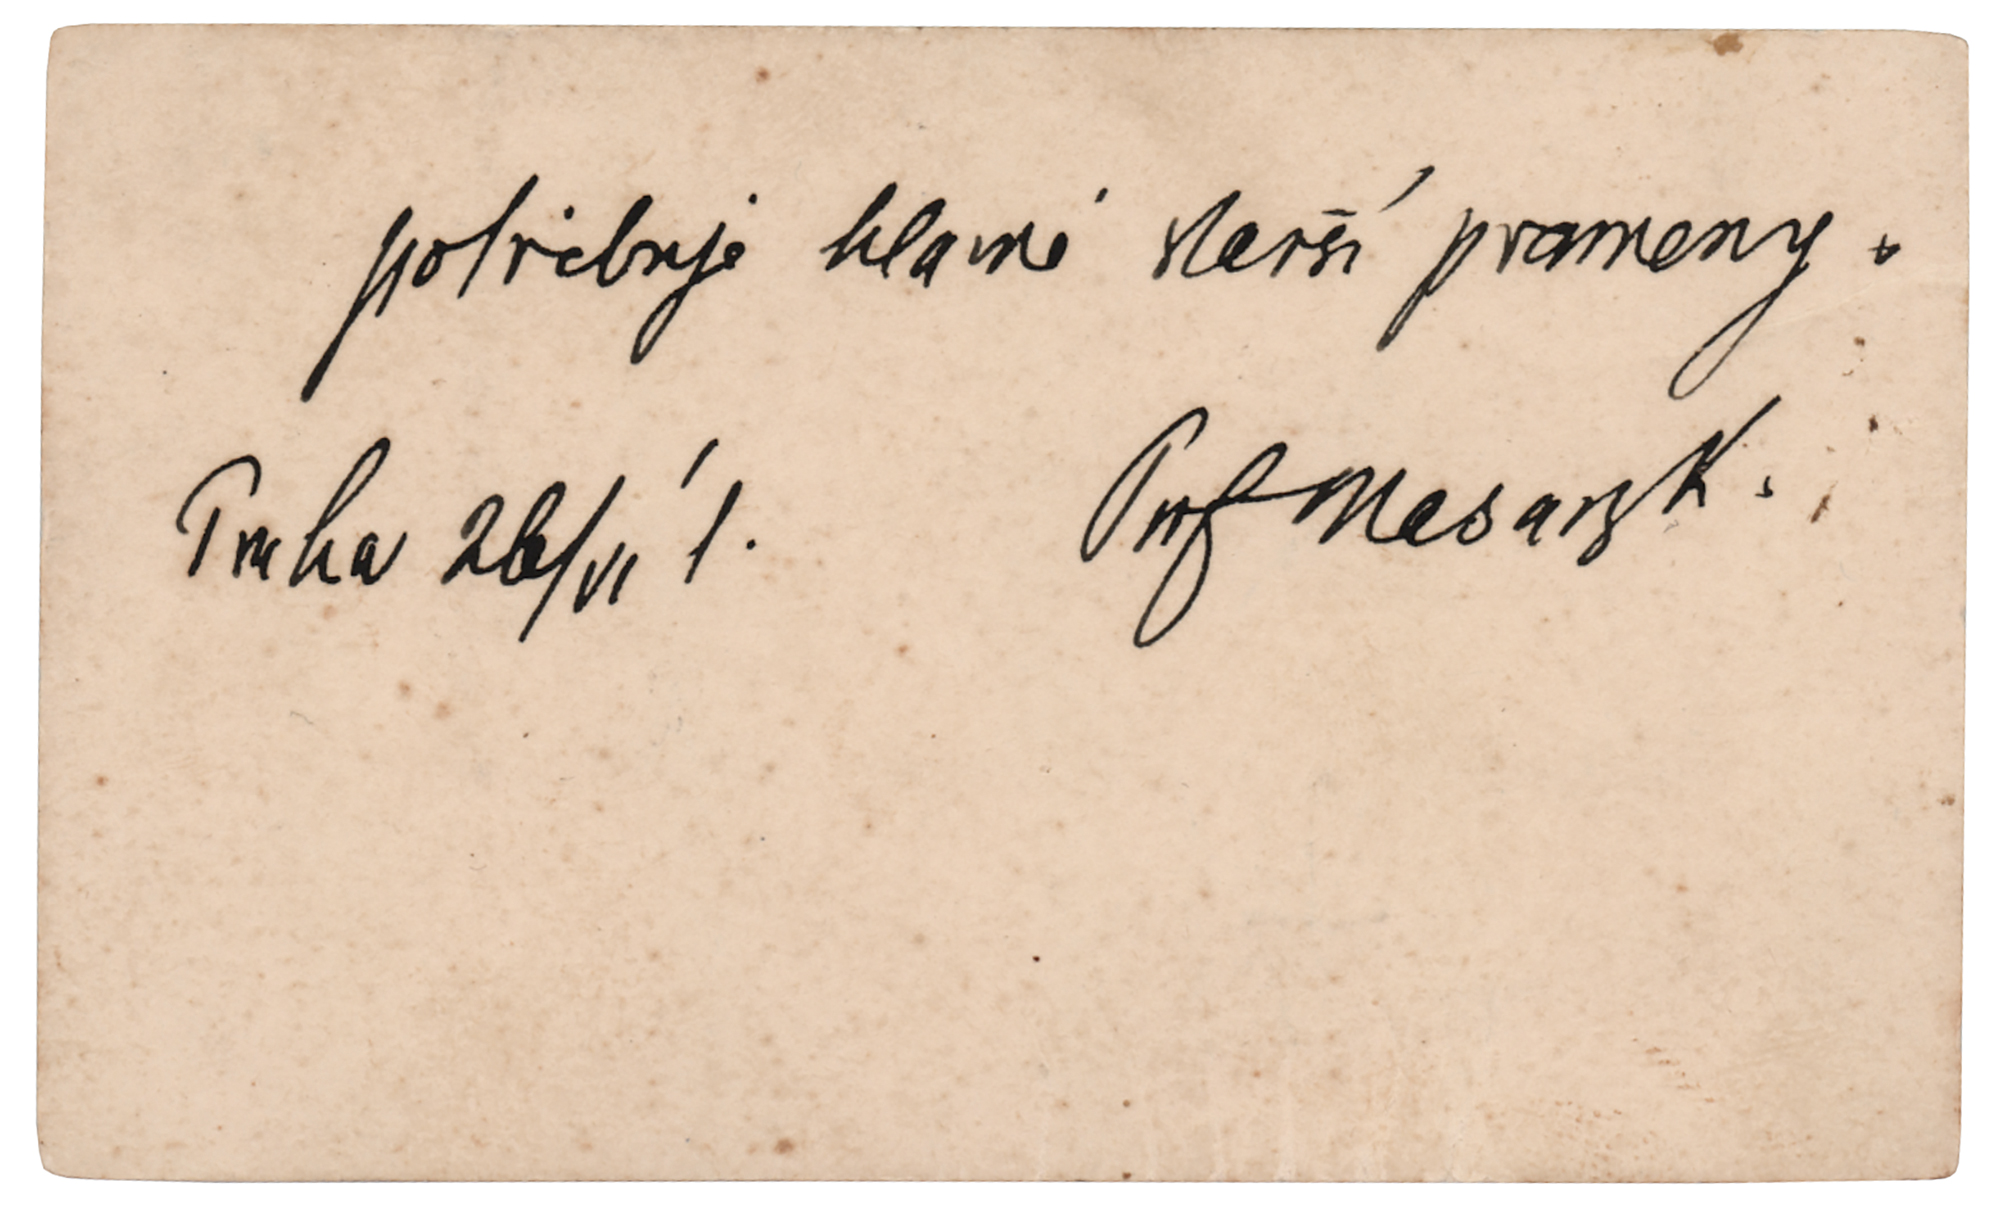 potřebuje hlavně starší prameny.
Praha 26/VI '1. Prof Masaryk.